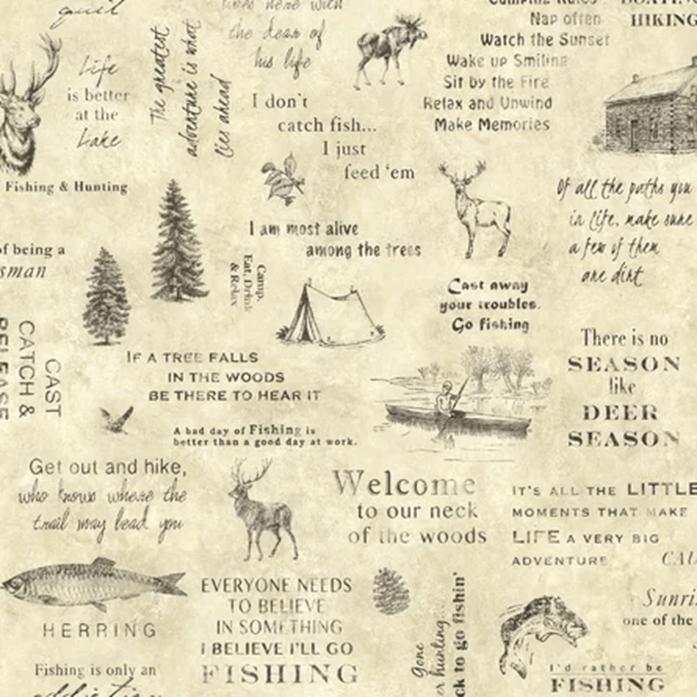 quit
Life
is better
at the
Lake
Fishing & Hunting
The greatest
adventure is what
lies ahead
lives here with
the dear of
his life
I don't
catch fish...
I just
feed 'em
Camping Rules
Nap often
Watch the Sunset
Wake up Smiling
Sit by the Fire
Relax and Unwind
Make Memories
BOATING
HIKING
of being a
sman
I am most alive
among the trees
Camp,
Eat, Drink
& Relax
Of all the paths you
in life, make sure
a few of them
are dirt
Cast away
your troubles.
Go fishing
CAST
CATCH &
RELEASE
IF A TREE FALLS
IN THE WOODS
BE THERE TO HEAR IT
There is no
SEASON
like
DEER
SEASON
A bad day of Fishing is
better than a good day at work.
Get out and hike,
who knows where the
trail may lead you
Welcome
to our neck
of the woods
IT'S ALL THE LITTLE
MOMENTS THAT MAKE
LIFE A VERY BIG
ADVENTURE
HERRING
EVERYONE NEEDS
TO BELIEVE
IN SOMETHING
I BELIEVE I'LL GO
FISHING
Gone
hunting...
ck to go fishin'
CAU
Sunri
one of the
I'd rather be
FISHING
Fishing is only an
addiction